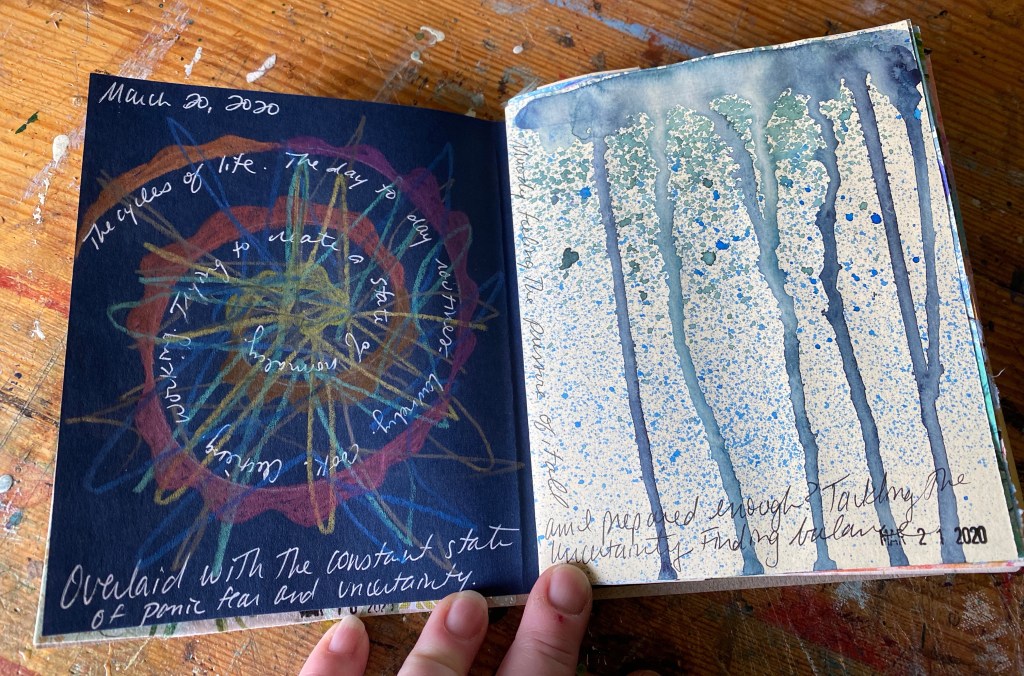 March 20, 2020
The cycles of life. The day to day routines - laundry. Cook. Cleaning Working. Trying to create a state of normalcy.
Overlaid with The constant state
of panic fear and uncertainty.
of it all
and prepared enough? Tackling The
uncertainty. Finding balance
MAR 21 2020